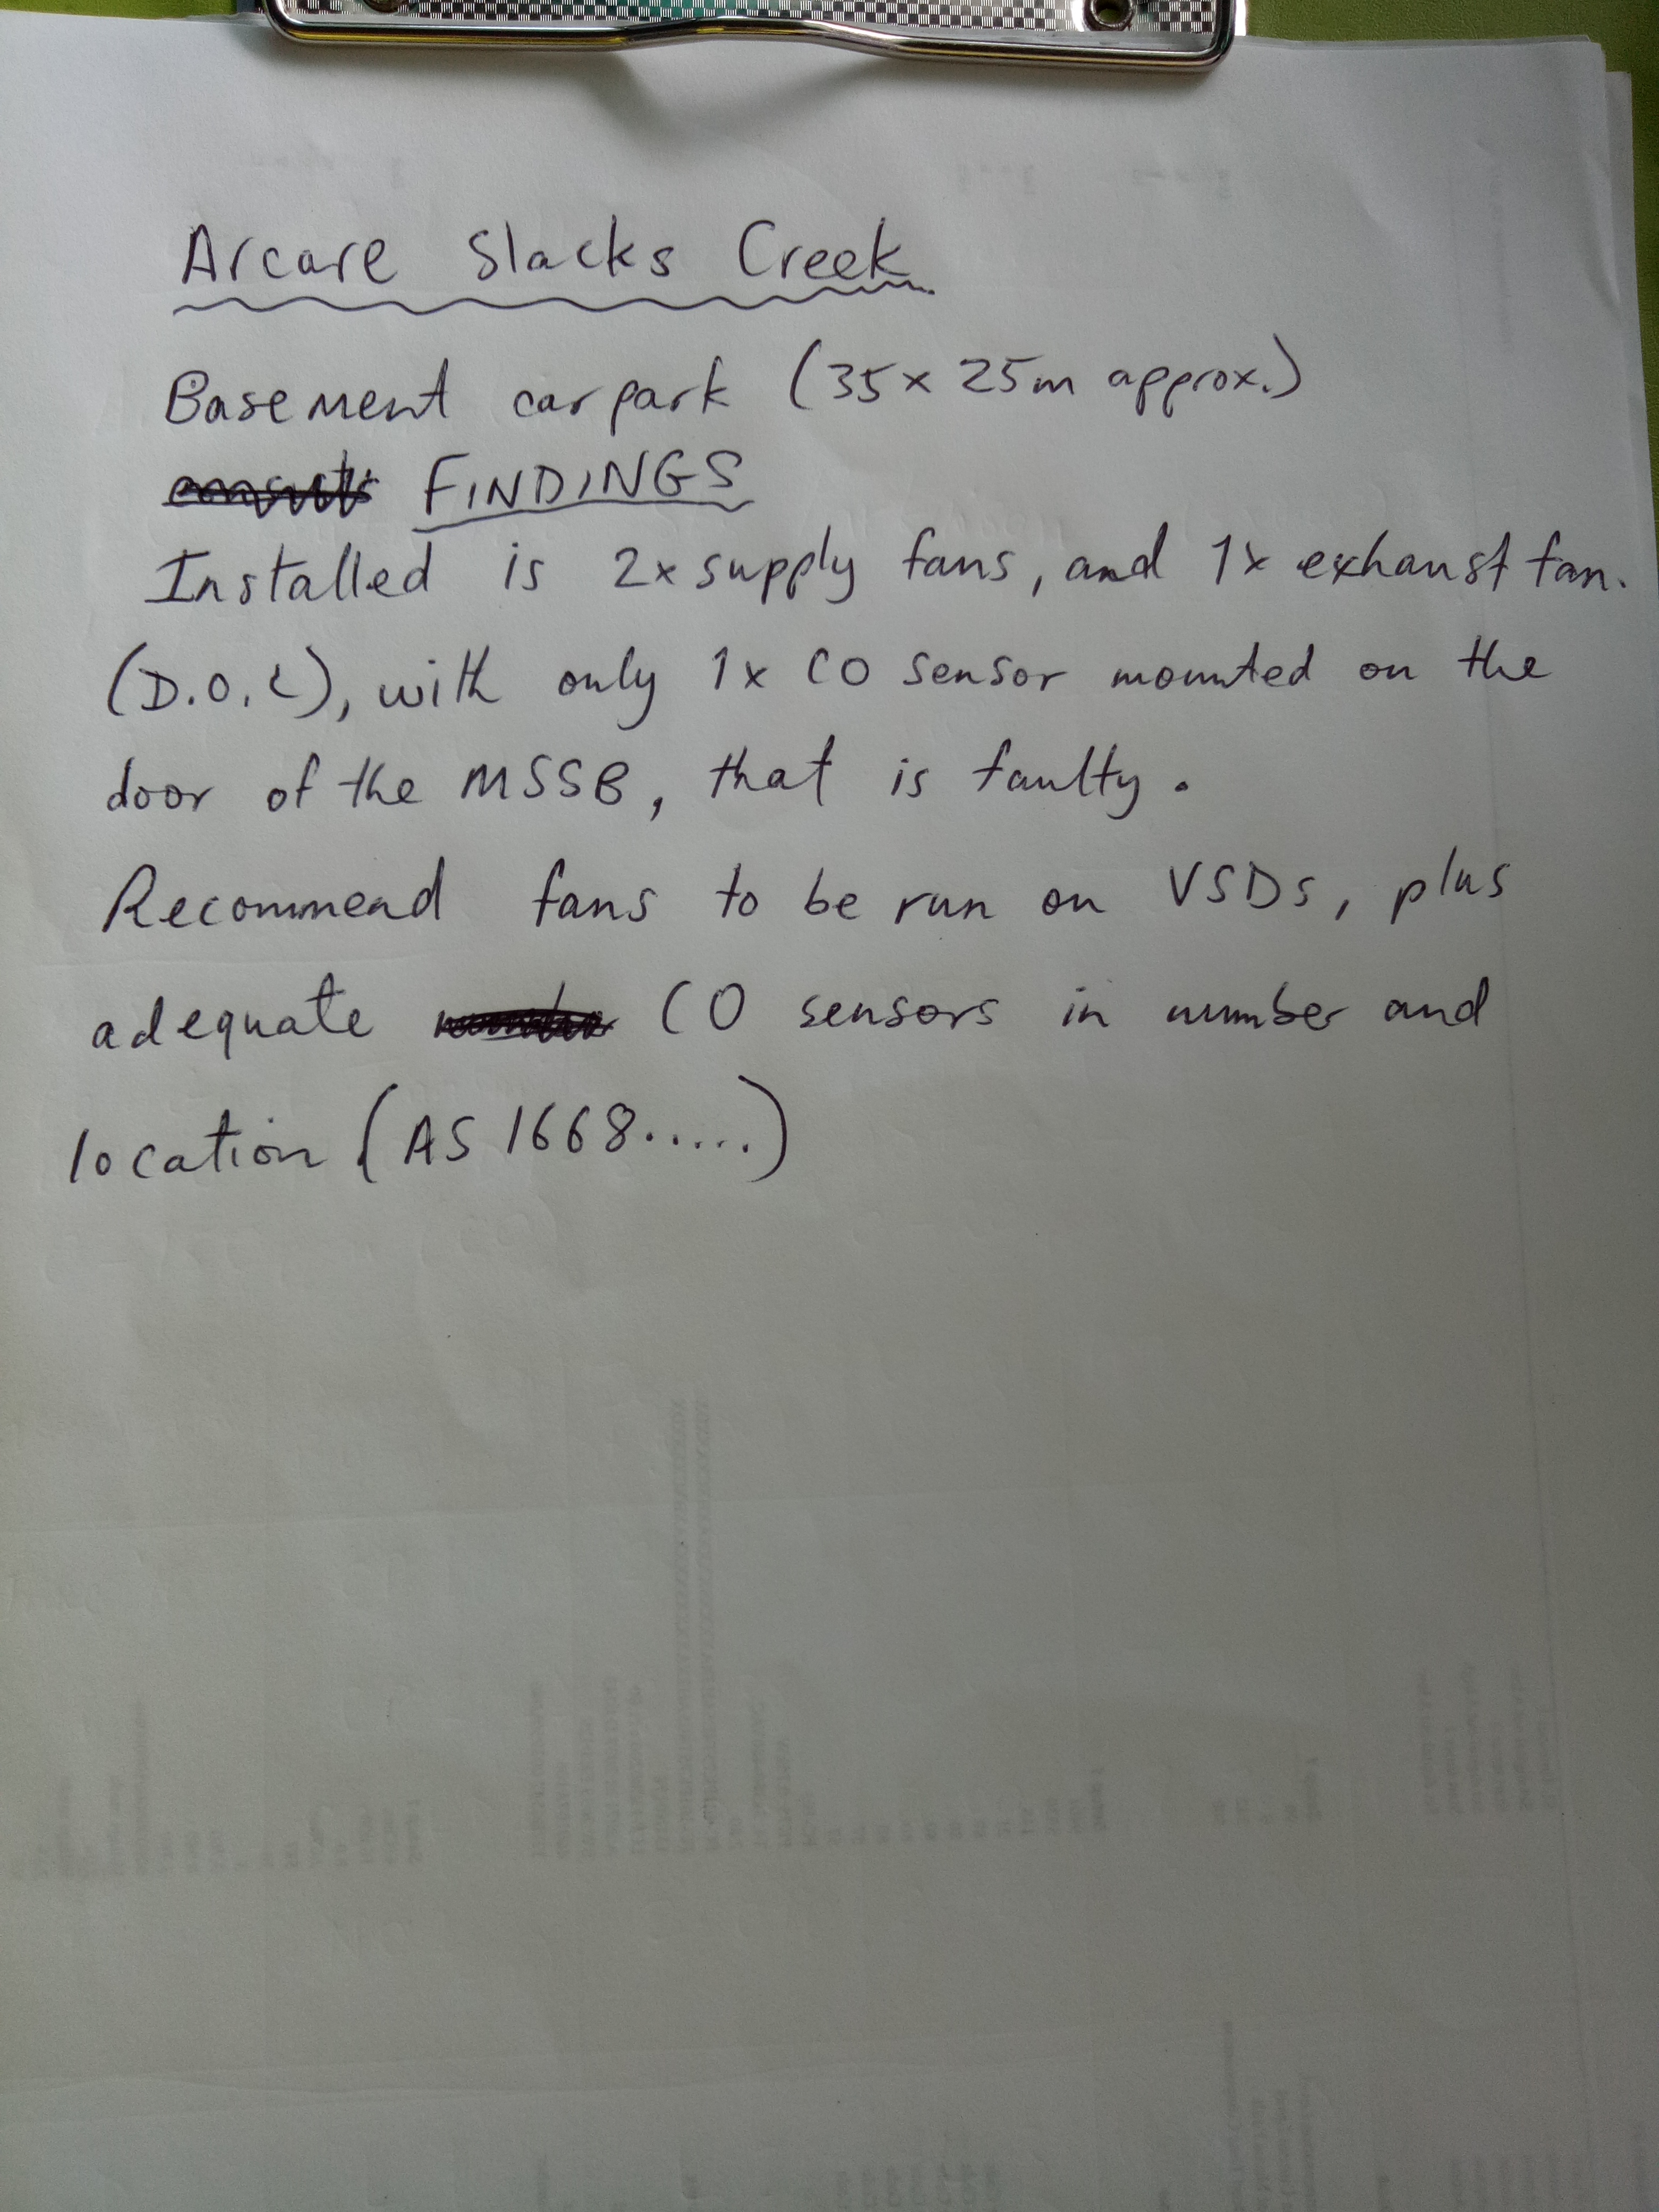 Arcare Slacks Creek
Basement carpark (35x25m approx.)
FINDINGS
Installed is 2x supply fans, and 1x exhaust fan.
(D.O.L), with only 1x CO sensor mounted on the
door of the MSSB, that is faulty.
Recommend fans to be run on VSDs, plus
adequate CO sensors in number and
location (AS 1668.....)